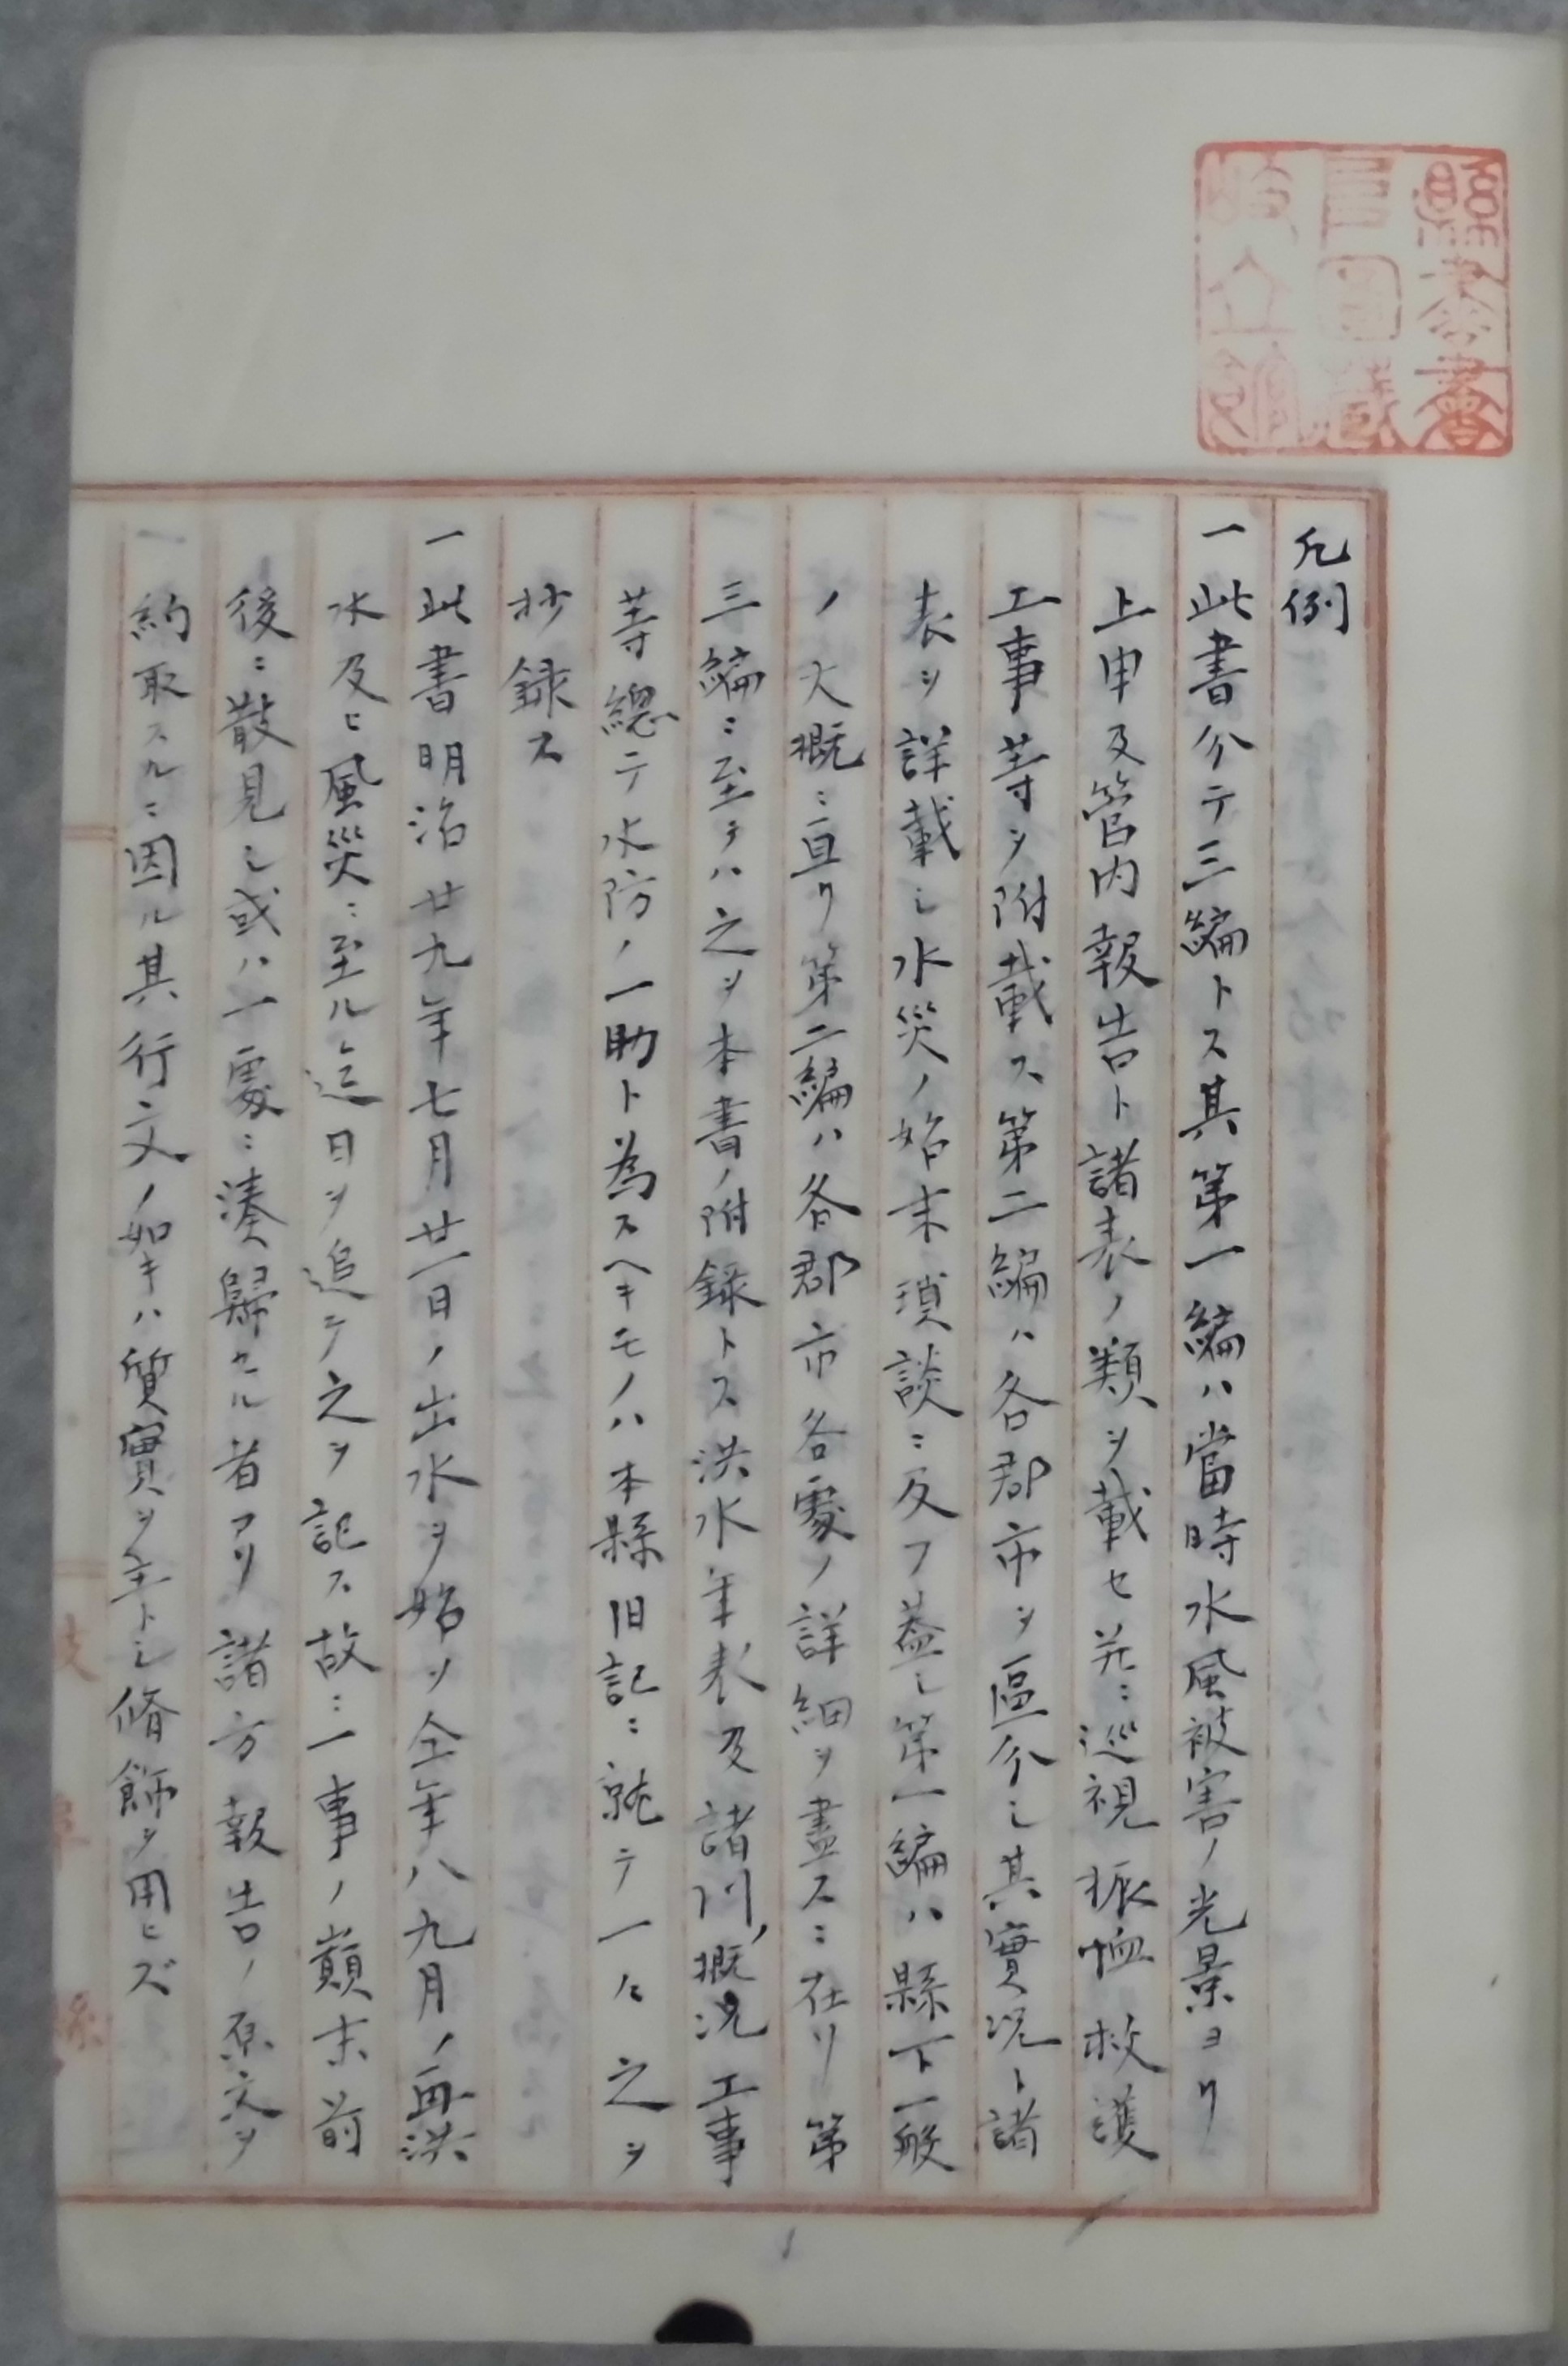 凡例
一此書分テ三編トス其第一編ハ當時水風被害ノ光景ヨリ
上申及管内報告ト諸表ノ類ヲ載セ并ニ巡視振恤救護
工事等ヲ附載ス第二編ハ各郡市ヲ區分シ其實况ト諸
表ヲ詳載シ水災ノ始末瑣談ニ及フ蓋シ第一編ハ縣下一般
ノ大概ニ亘リ第二編ハ各郡市各處ノ詳細ヲ盡スニ在リ第
三編ニ至テハ之ヲ本書ノ附録トス洪水年表及諸川ノ概况工事
等總テ水防ノ一助ト為スヘキモノハ本縣旧記ニ就テ一々之ヲ
抄録ス
一此書明治廿九年七月廿一日ノ出水ヲ始メ仝年八九月ノ再洪
水及ヒ風災ニ至ル迄日ヲ追テ之ヲ記ス故ニ一事ノ巓末前
後ニ散見シ或ハ一處ニ湊歸セル者アリ諸方報告ノ原文ヲ
約取スルニ因ル其行文ノ如キハ質實ヲ主トシ脩飾ヲ用ヒズ